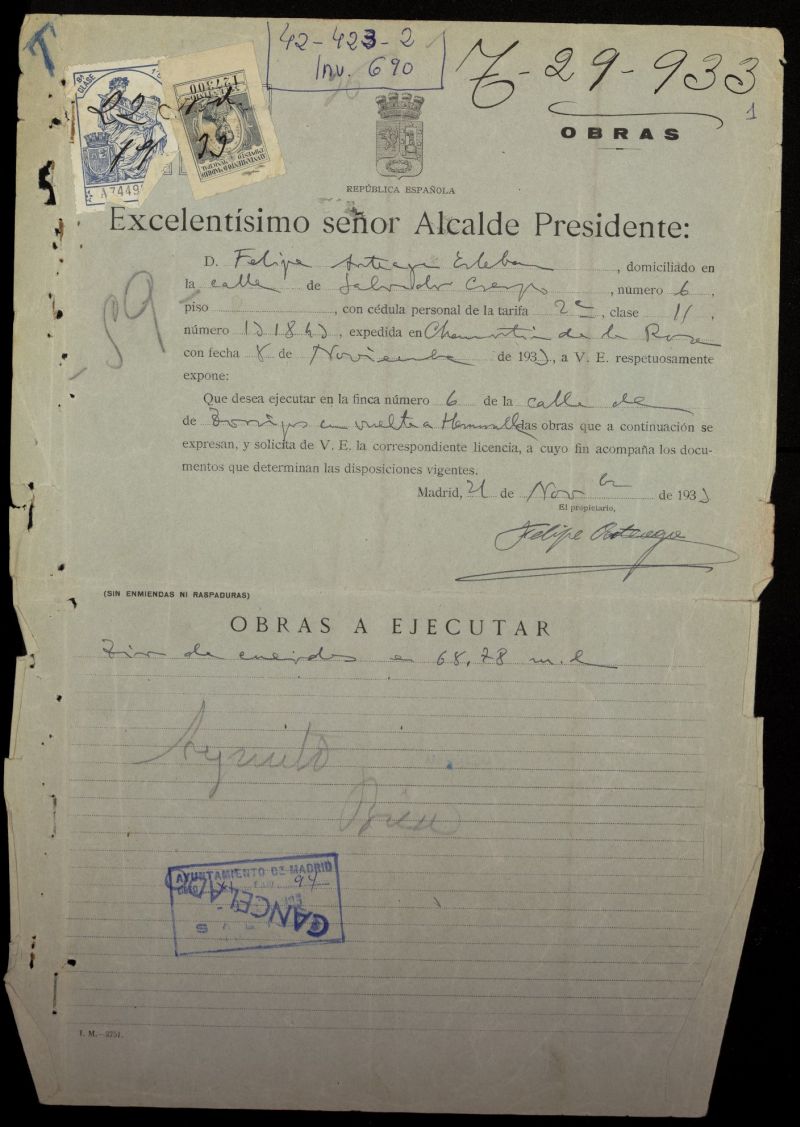 T
42-423-2
Inv. 690
7-29-933
1
OBRAS
8ª CLASE
A7449
127300
22
33
REPÚBLICA ESPAÑOLA
Excelentísimo señor Alcalde Presidente:
D. Felipe Arteaga Esteban, domiciliado en
la calle de Salvador Crespo, número 6,
piso , con cédula personal de la tarifa 2ª, clase 11,
número, expedida en Chamartín de la Rosa
con fecha 8 de Noviembre de 1933, a V. E. respetuosamente
expone:
Que desea ejecutar en la finca número 6 de la calle de
de con vuelta a las obras que a continuación se
expresan, y solicita de V. E. la correspondiente licencia, a cuyo fin acompaña los docu-
mentos que determinan las disposiciones vigentes.
Madrid, 21 de Novbre de 1933
El propietario,
Felipe Arteaga
59
(SIN ENMIENDAS NI RASPADURAS)
OBRAS A EJECUTAR
de cuerdas en 68,78 m.l
AYUNTAMIENTO DE MADRID
94
CANCELADO
I. M.—3751.